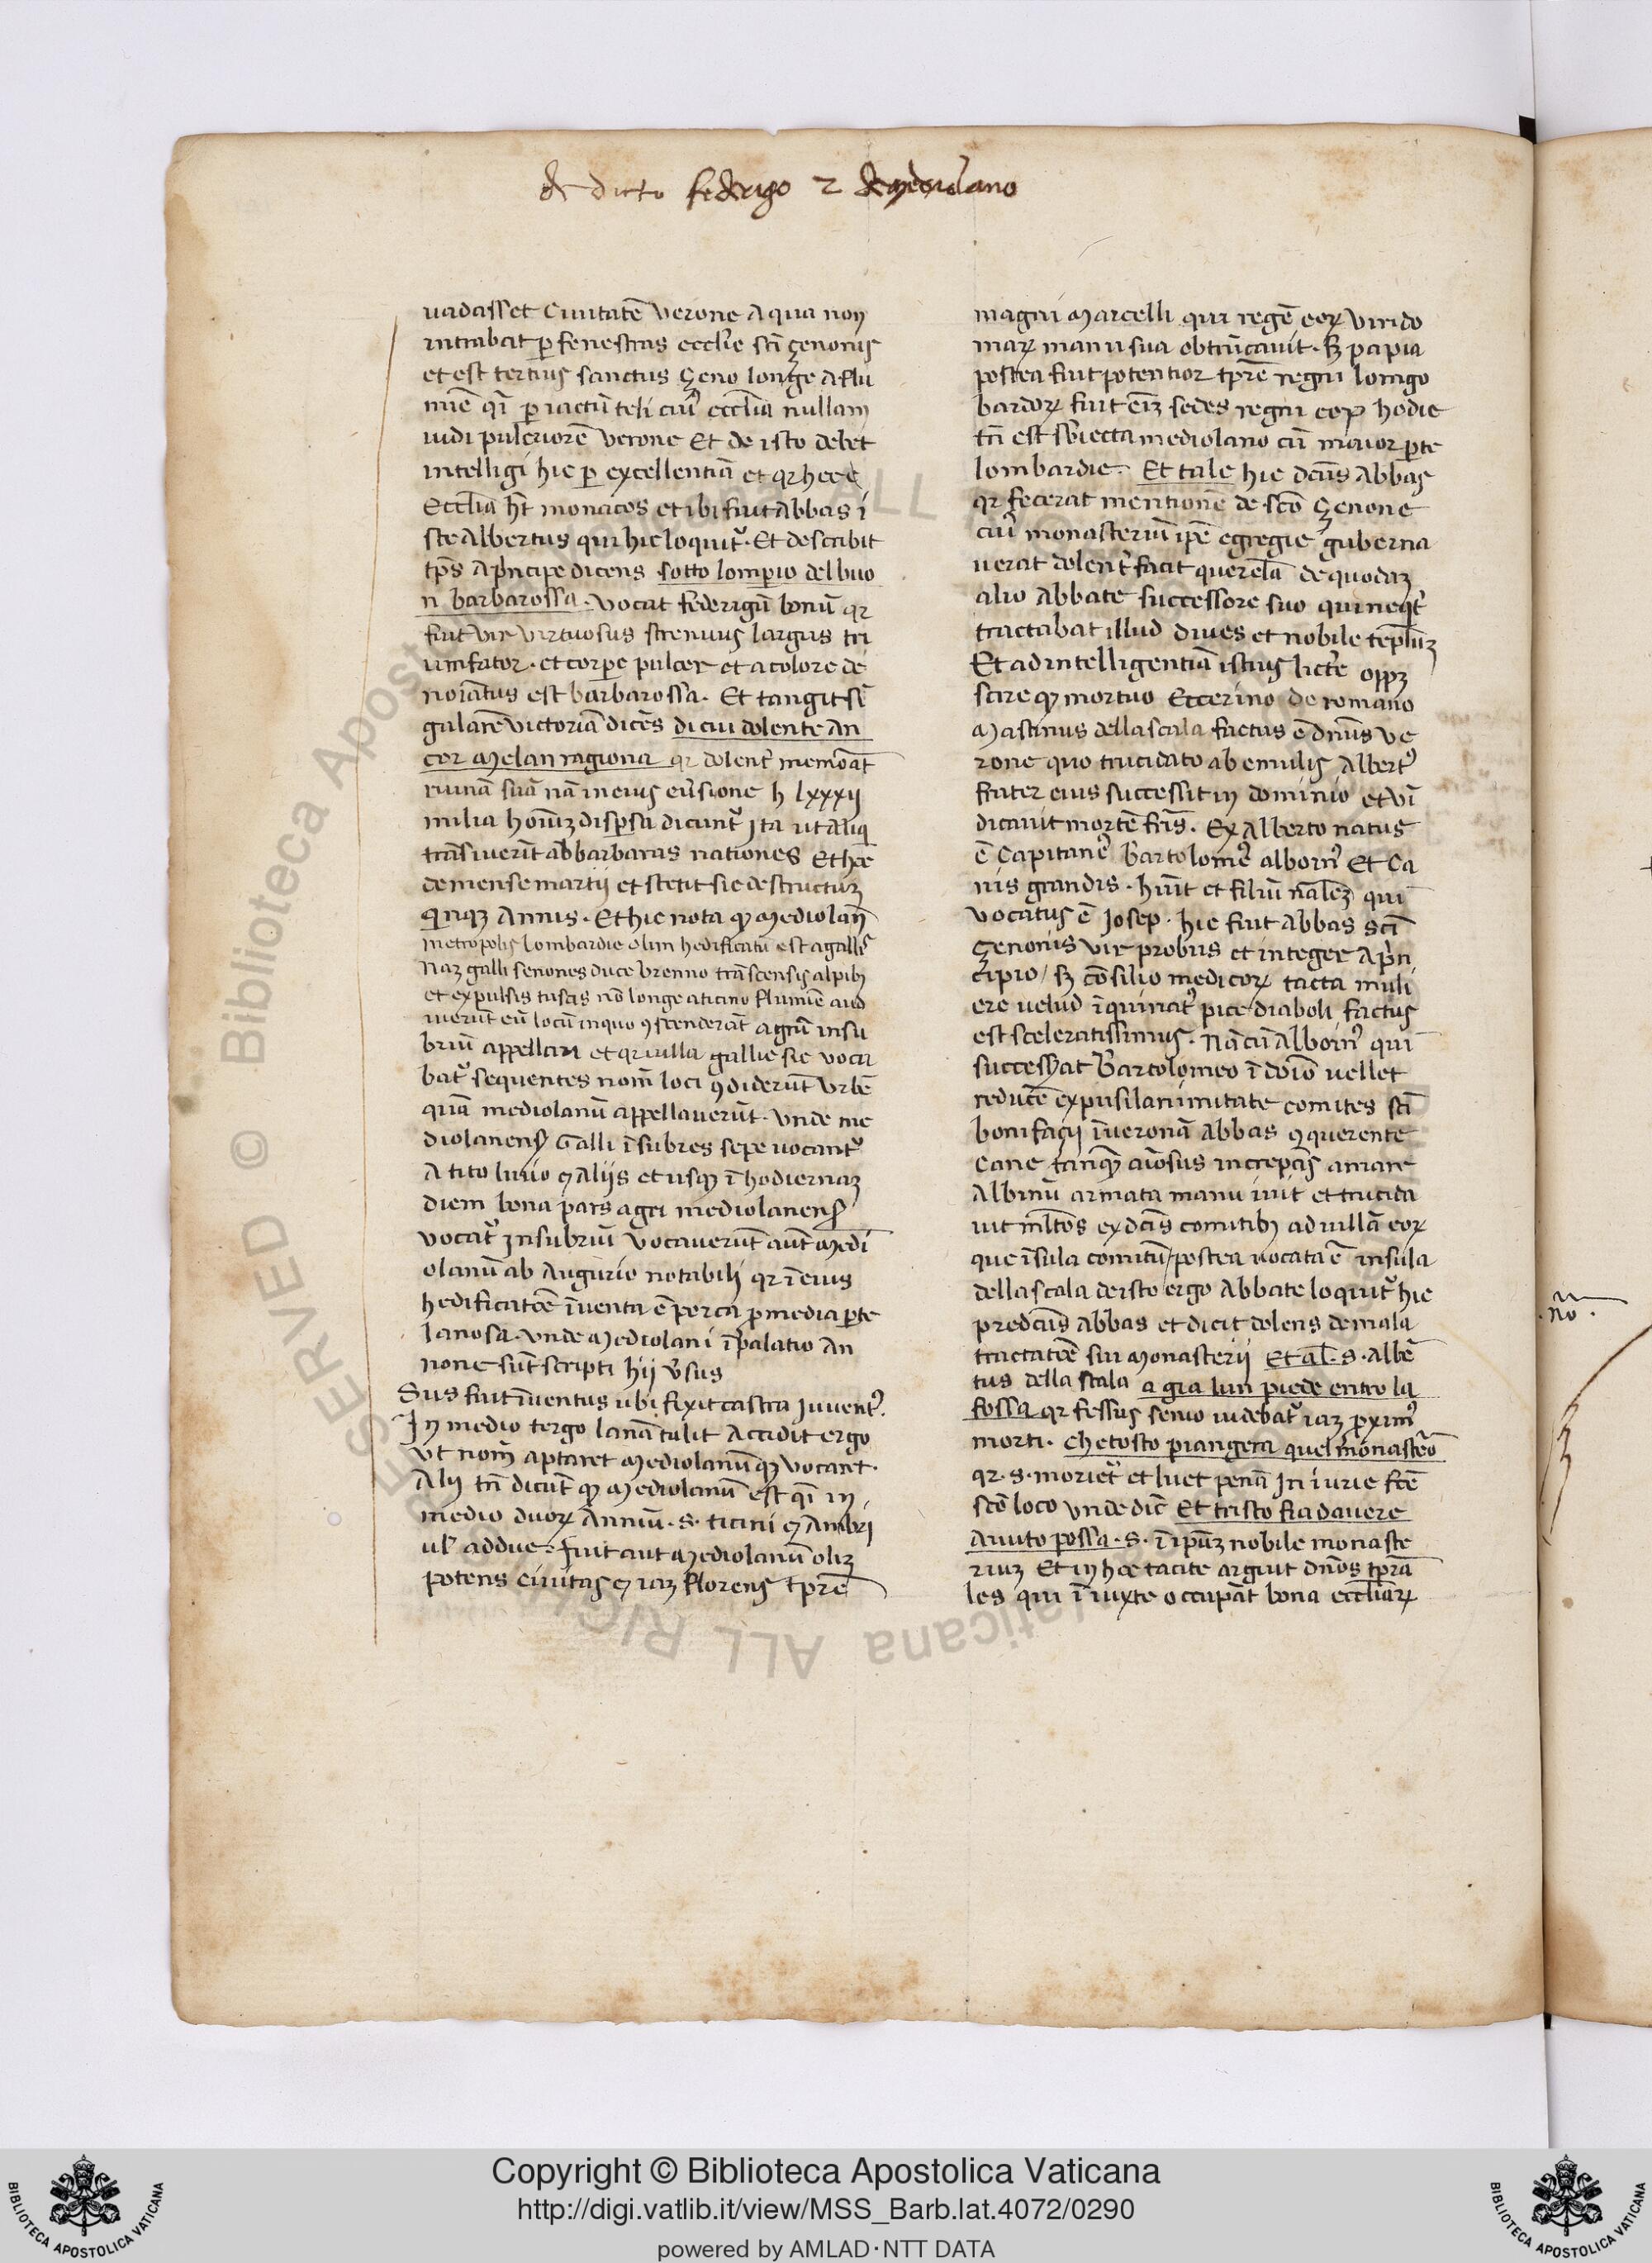 de dicto federigo 2 de mediolano
uadasset Ciuitatē Verone Aqua non
intrabat p fenestras ecclīe scī çenonis
et est tertius sanctus çeno longe a flu
mie qī p iactū teli cuī ecclīa nullam
uidi pulcriorē Verone Et de isto debet
intelligi hic p excellentiā et qr hec ē
Ecclīa ht monacos et ibi fuit Abbas i
ste Albertus qui hic loquit᷑. Et describit
tps a p̄ncipe dicens sotto lomperio del buo
n barbarossa. vocat federigū bonū qr
fuit vir virtuosus strenuus largus tri
umfator. et corpe pulcer et a colore de
noīatus est barbarossa. Et tangit sī
gularē victoriā dicēs di cui dolente an
cor melan ragiona qr dolent᷑ memōat
ruinā suā nā in eius eūsione h lxxxij
milia homīuȝ dispsa dicunt᷑ Ita ut aliq
trāsiuerīt ad barbaras nationes Et hoc
de mense martij et stetit sic destructuȝ
qinqȝ Annis. Et hic nota qȝ mediolanū
metropolis lombardie olim hedificatū est a gallis
Naȝ galli senones duce brenno trāscensis alpibȝ
et expulsis tuscis nō longe a ticino flumie aud
iuerūt eū locū in quo ꝯscenderāt agrū insu
briū appellari et qr uilla gallie sic voca
bat᷑ sequentes nom̄ loci ꝯdiderūt Vrbē
quā mediolanū appellauerūt. Vnde me
diolanens̄ Galli īsubres sepe uocant᷑
A tito liuio ⁊ Aliis et usqȝ ī hodiernaȝ
diem bona pars agri mediolanens̄
vocat᷑ Insubriū Vocauerūt aūt Medi
olanū ab Augurio notabili qr ī eius
hedificatoē īuenta ē porca p media pte
lanosa. vnde Mediolani ī palatio An
none sūt scripti hij v̄sus
Sus fuit īuentus ubi fixit castra Iuuent᷑.
In medio tergo lanā tulit Accidit ergo
Vt nom̄ aptaret Mediolanū qȝ vocaret.
Alij tn̄ dicūt qȝ Mediolanū est qī in
medio duoꝝ Amniū. s. ticini ⁊ Ambri
ul addue. fuit aut Mediolanū oliȝ
potens ciuitas ⁊ iaȝ florens tpre
magni Marcelli qui regē eoꝝ Virido
maꝝ manu sua obtrūcauit. Sȝ papia
postea fuit potentior tpre regni longo
bardoꝝ fuit eīȝ sedes regni eoꝝ hodie
tn̄ est sb̄iecta mediolano cū maior pte
lombardie. Et tale hic dcūs Abbas
qr fecerat mentionē de scō çenone
cuī monasteriū ipē egregie guberna
uerat dolent᷑ facit querelā de quodaȝ
alio Abbate successore suo qui neqt᷑
tractabat illud diues et nobile teplūȝ
Et ad intelligentiā istius lictre oppȝ
scire qȝ mortuo Eccerino de romano
Mastinus della scala factus ē dnūs Ve
rone quo trucidato ab emulis Albert᷑
frater eius successit in dominio et vī
dicauit mortē fris̄. Ex Alberto natus
ē Capitane᷑ Bartolome᷑ alboin᷑ Et Ca
nis grandis. hūit et filiū nālēȝ qui
vocatus ē Iosep. hic fuit Abbas scī
çenonis vir probus et integer a p̄n
cipio / sȝ cōsilio medicoꝝ tacta muli
ere velud īquinat᷑ pice diaboli factus
est sceleratissimus. Nā cū Alboin᷑ qui
successat Bartolomeo ī doīo uellet
reducē ex pusilanimitate comites scī
bonifacij ī veronā Abbas ꝯquerente
Cane tanqȝ aīosus increpās amare
Albinū armata manu iuit et trucida
uit ml̄tos ex dcīs comitibȝ ad uillā eoꝝ
que īsula comitū / postea uocata ē insula
della scala de isto ergo Abbate loquit᷑ hic
predcūs abbas et dicit dolens de mala
tractatoē sui Monasterij Et al. s. Albē
tus della scala a gia lun piede entro la
fossa qr fessus senio uidebat᷑ iaȝ pxim᷑
morti. che tosto piangera quel monasterō
qr. s. moriet᷑ et luet penā Iniurie fcē
scō loco vnde dic̄ Et tristo fia dauere
Auuto possa. s. ī ipūȝ nobile monaste
riuȝ Et in hoc tacite arguit dnōs tprā
les qui ī iuxte occupāt bona eccliāꝝ
.no.
© Biblioteca Apostolica Vaticana ALL RIGHTS RESERVED
Copyright © Biblioteca Apostolica Vaticana
http://digi.vatlib.it/view/MSS_Barb.lat.4072/0290
powered by AMLAD·NTT DATA
BIBLIOTECA APOSTOLICA VATICANA
BIBLIOTECA APOSTOLICA VATICANA